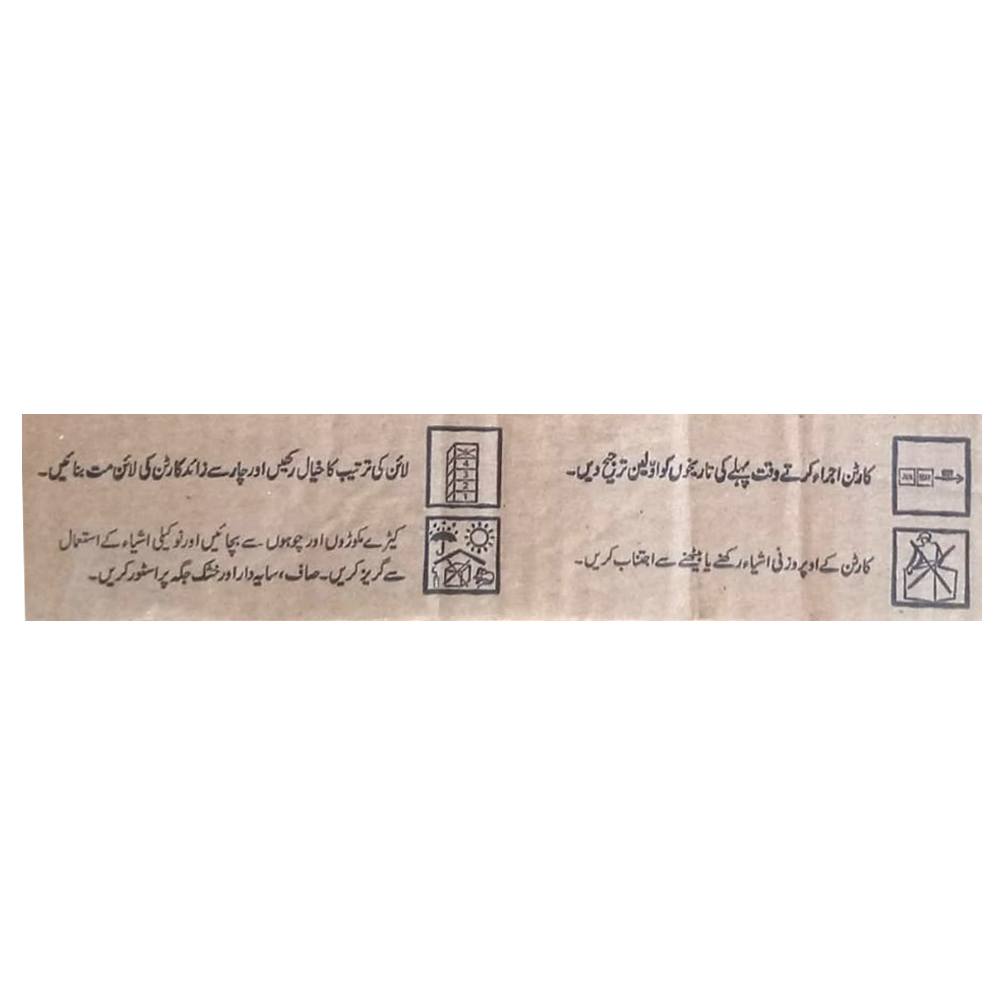 کارٹن اجراء کرتے وقت پہلے کی تاریخوں کو اوّلین ترجیح دیں۔
JAN MAY
کارٹن کے اوپر وزنی اشیاء رکھنے یا بیٹھنے سے اجتناب کریں۔
لائن کی ترتیب کا خیال رکھیں اور چار سے زائد کارٹن کی لائن مت بنائیں۔
4
3
2
1
کیڑے مکوڑوں اور چوہوں سے بچائیں اور نوکیلی اشیاء کے استعمال
سے گریز کریں۔ صاف، سایہ دار اور خشک جگہ پر اسٹور کریں۔